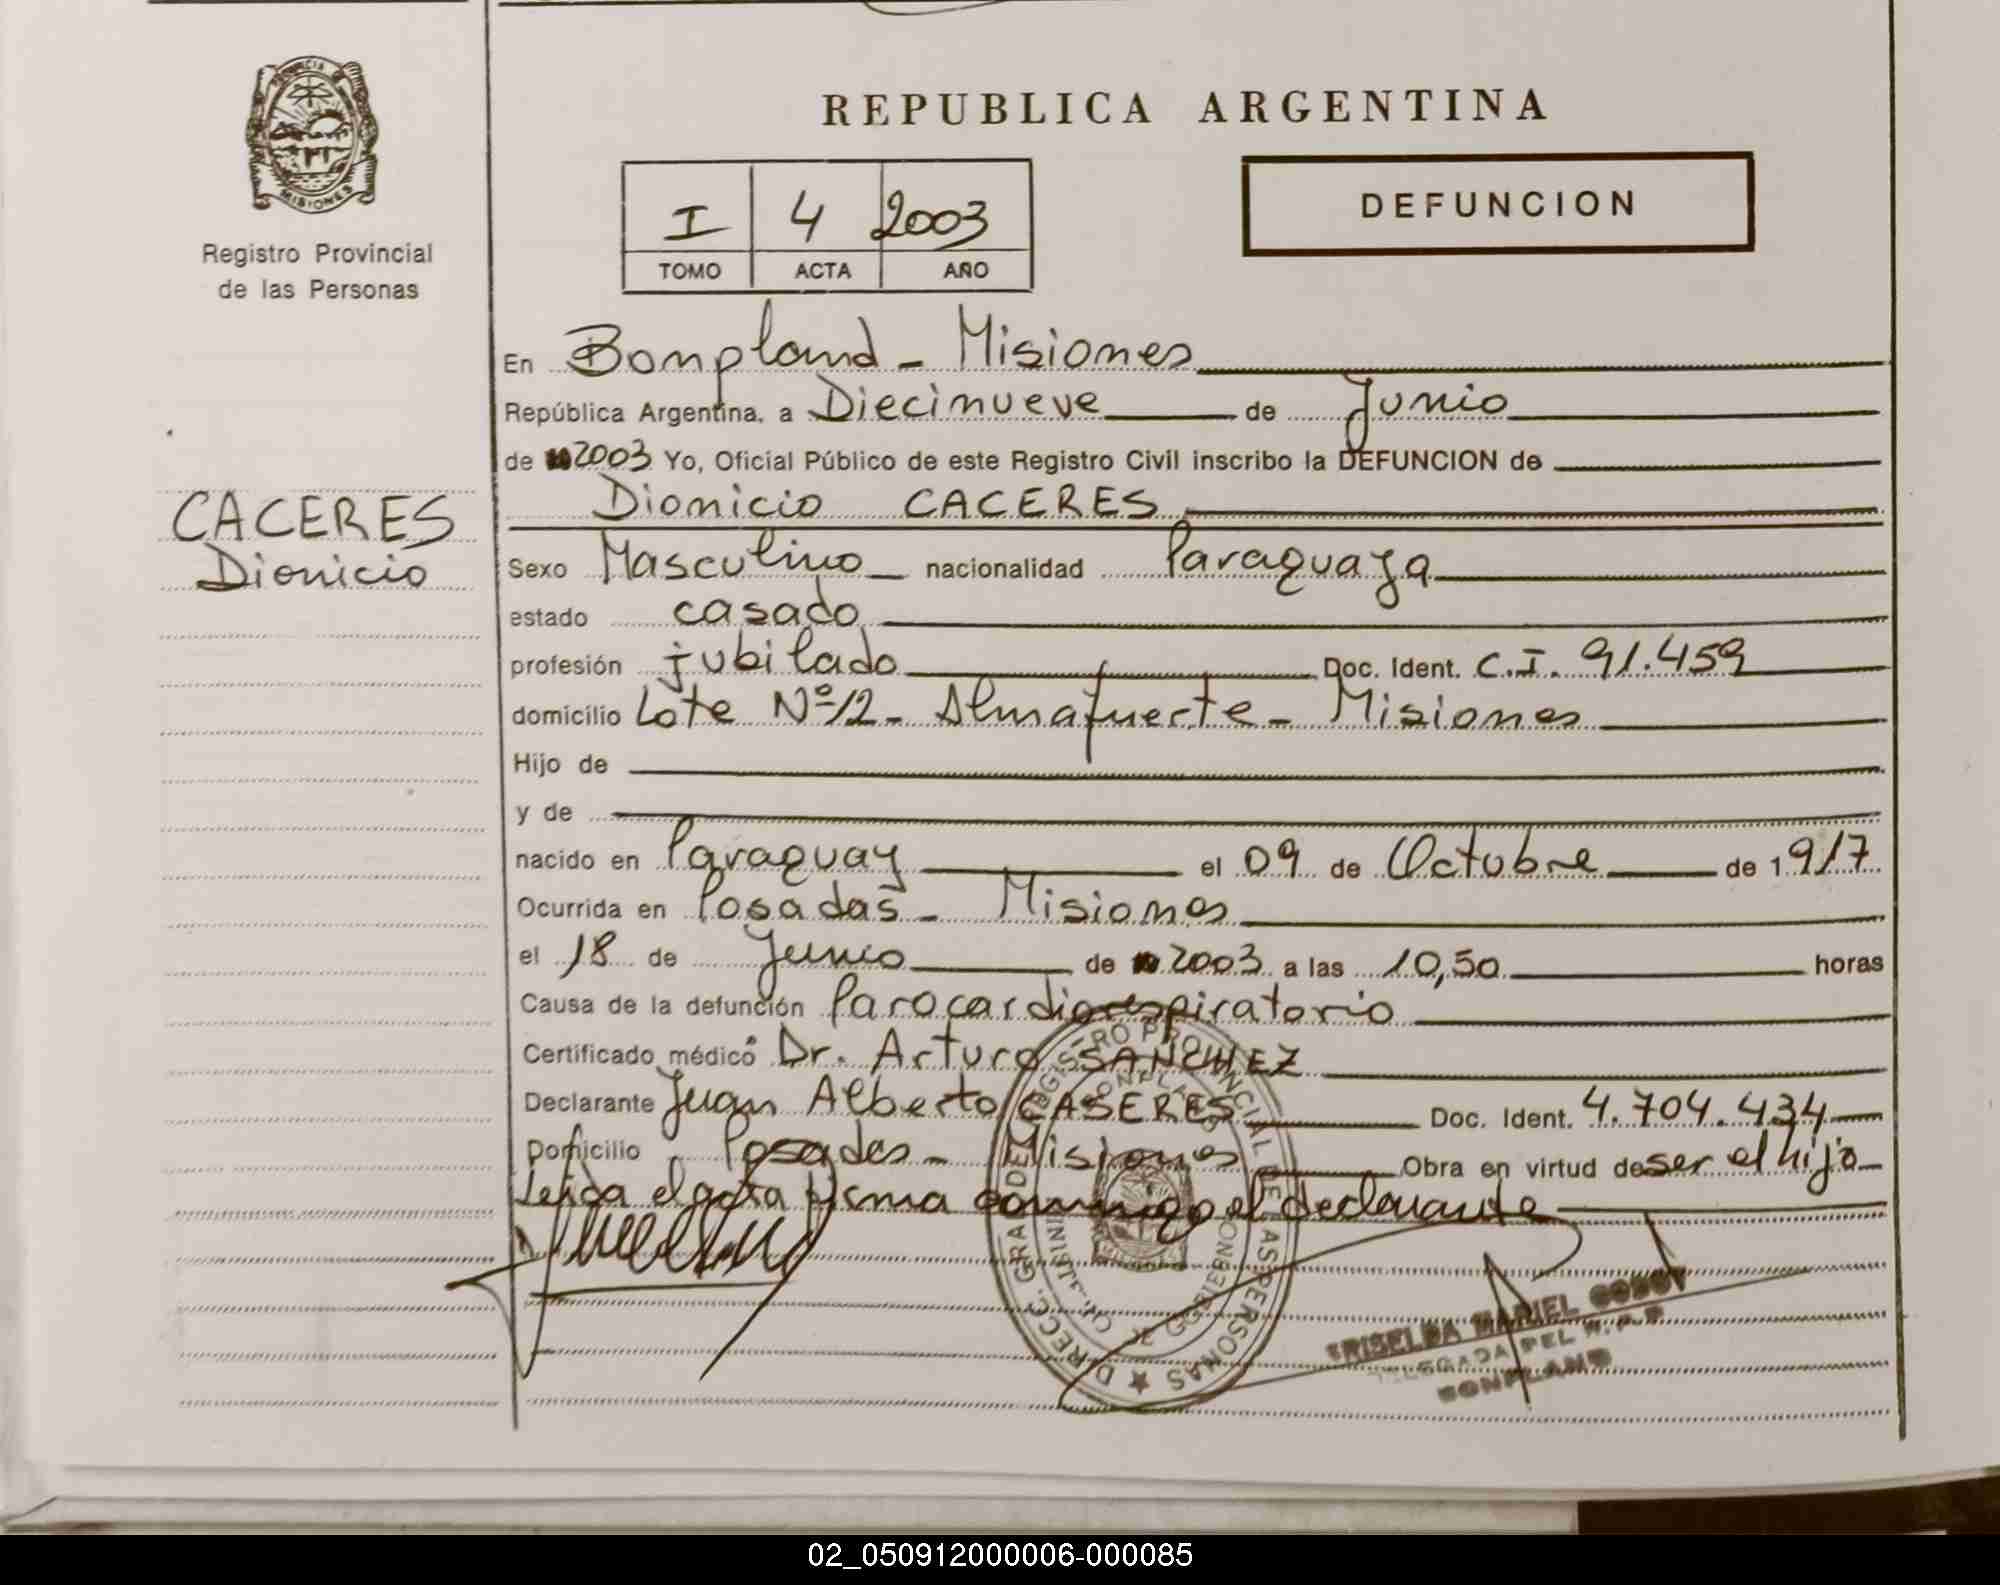 PROVINCIA DE
MISIONES
Registro Provincial
de las Personas
CACERES
Dionicio
REPUBLICA ARGENTINA
I 4 2003
TOMO ACTA AÑO
DEFUNCION
En Bonpland - Misiones
República Argentina, a Diecinueve de Junio
de 2003 Yo, Oficial Público de este Registro Civil inscribo la DEFUNCION de
Dionicio CACERES
Sexo Masculino nacionalidad Paraguaya
estado casado
profesión jubilado Doc. Ident. C.I. 91.459
domicilio Lote Nº 12 - Almafuerte - Misiones
Hijo de
y de
nacido en Paraguay el 09 de Octubre de 1917
Ocurrida en Posadas - Misiones
el 18 de Junio de 2003 a las 10,50 horas
Causa de la defunción Parocardiorespiratorio
Certificado médico Dr. Arturo SANCHEZ
Declarante Juan Alberto CASERES Doc. Ident. 4.704.434
Domicilio Posadas - Misiones Obra en virtud de ser el hijo
Leida el acta firma conmigo el declarante
DIRECC. GRAL. DEL REGISTRO PROVINCIAL DE LAS PERSONAS
BONPLAND
MINISTERIO DE GOBIERNO
GRISELDA MARIEL GODOY
DELEGADA DEL R.P.P.
BONPLAND
02_050912000006-000085